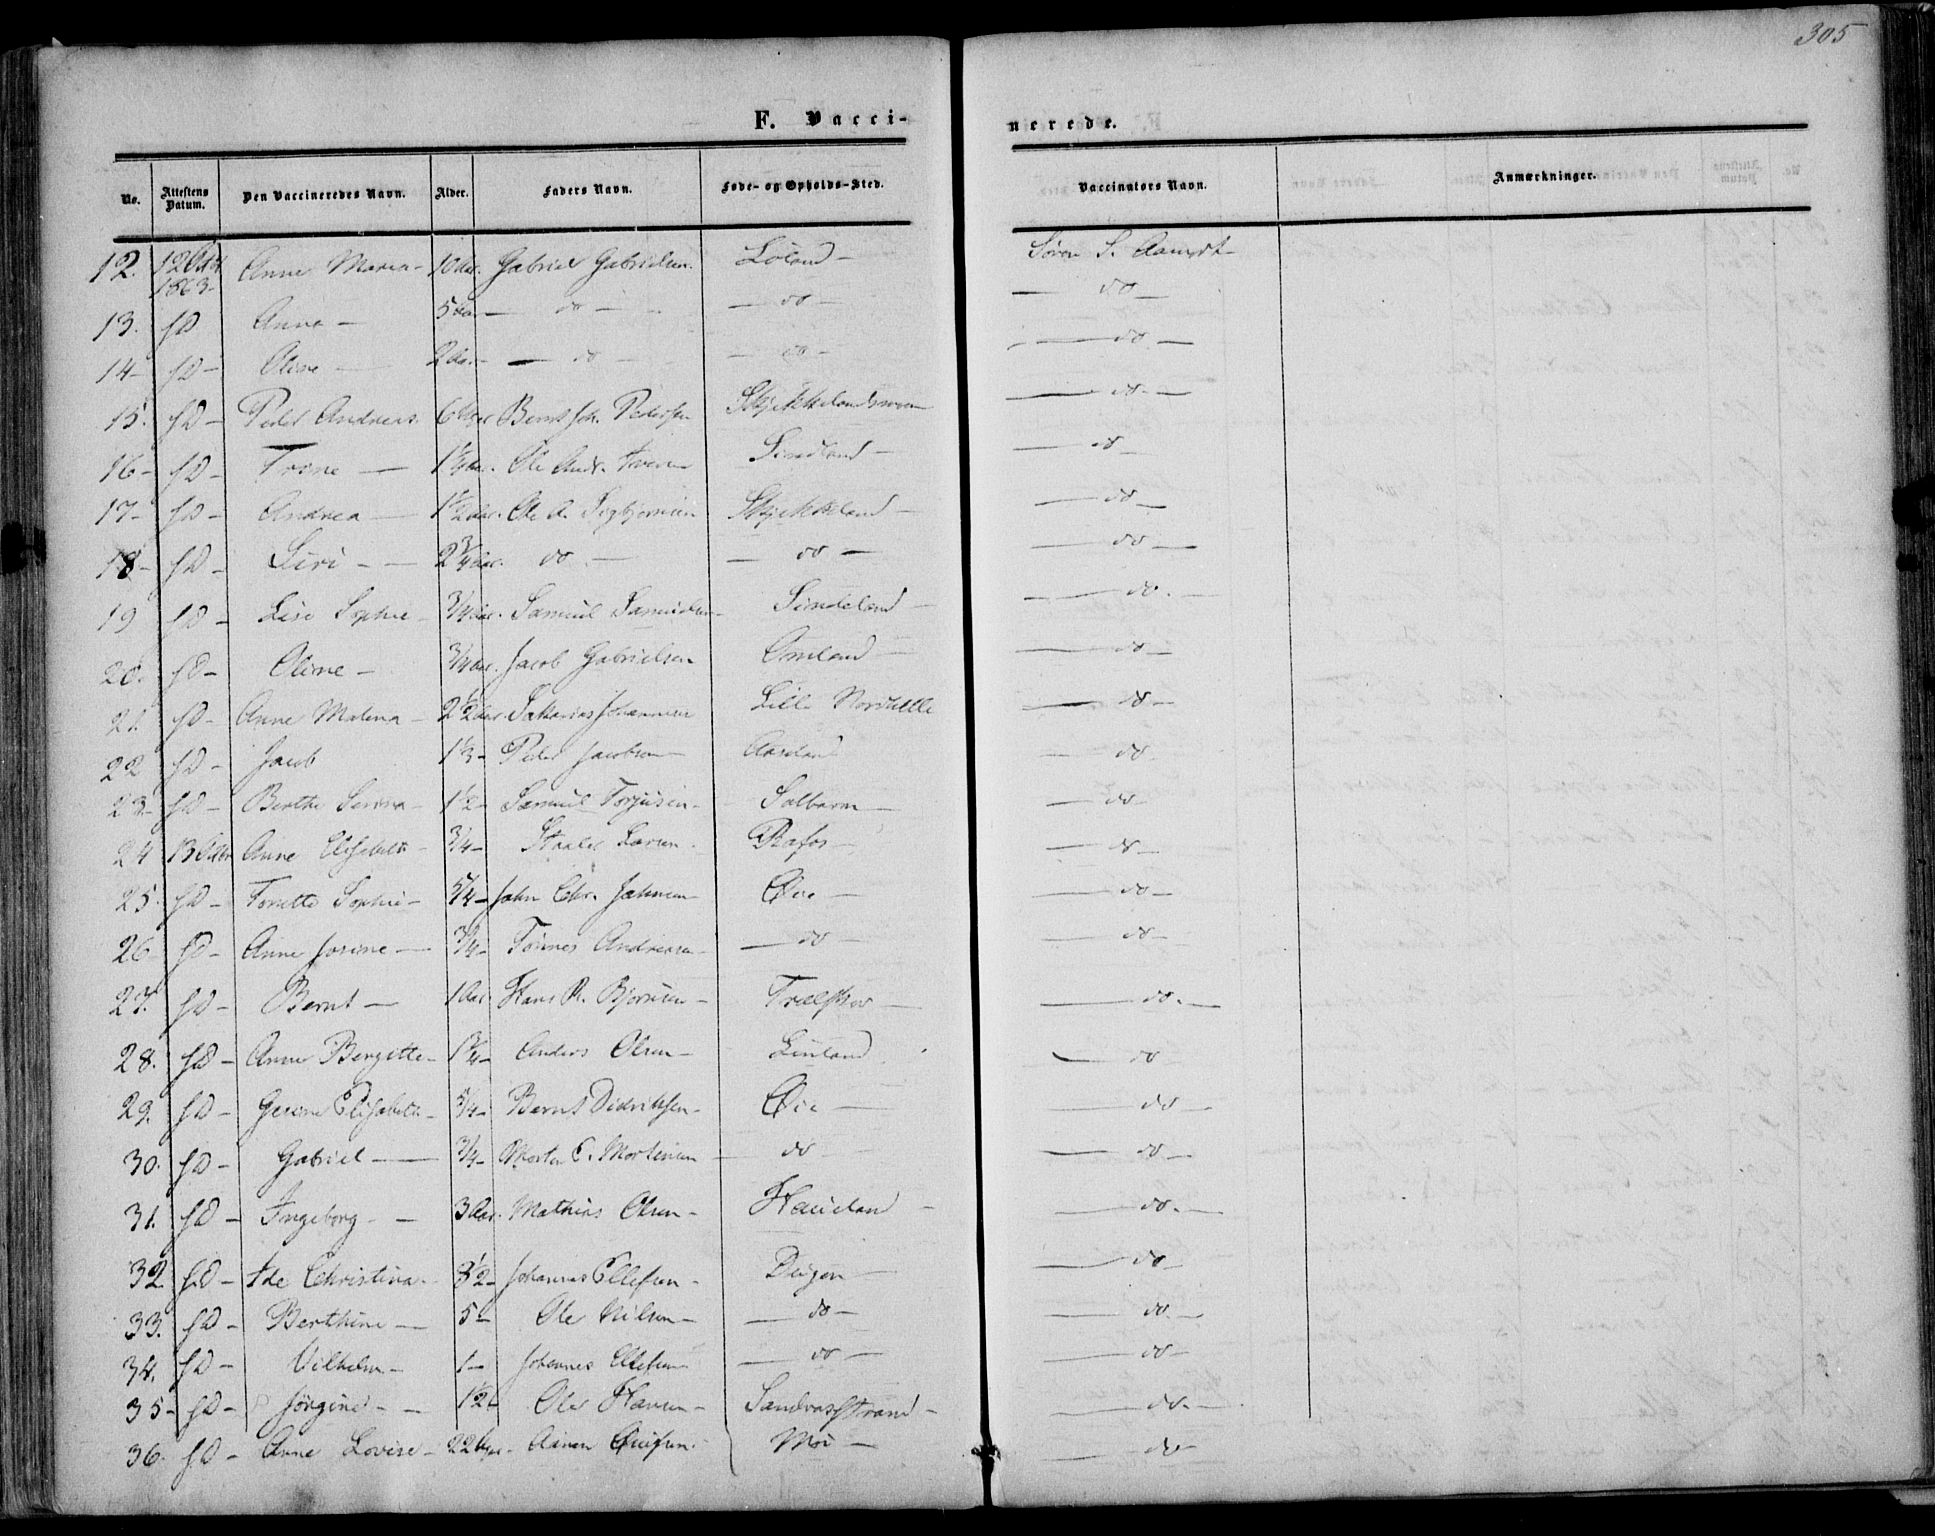 305
F. Vacci-
nerede.
No. Attestens Datum. Den Vaccineredes Navn. Alder. Faders Navn. Føde- og Opholds-Sted. Vaccinators Navn. Anmærkninger.
12. 12 Octbr 1863- Anne Maria - 10 Aar. Gabriel Gabrielsen. Løland - Søren S.
13. sD Anna - 5 Aar - do - - do - - do -
14 - sD - Oline - 2 Aar - - do - - do - - do -
15. sD - Peder Andreas. 6 Uger Bernt Joh. Pedersen - do -
16 - sD - Trine - Ole Andr. Sindland - - do -
17 - sD - Andrea - 1 1/2 Aar. Ole A. Sigbjørnsen Skjekkeland - - do -
18 - sD - Siri - - 2 3/4 Aar. do - - do - - do -
19 sD - Lise Sophie - 3/4 Aar. Samuel Samuelsen - Sindeland - - do. -
20. sD - Oline - 3/4 Aar. Jacob Gabrielsen Omland - - do -
21. sD - Anne Malena - 2 1/2 Aar. Zakarias Johannesen Lille - do -
22 sD - Jacob 1 1/3 - Peder Jacobsen - - do -
23 - sD - Berthe Serina - 1 1/2 - Samuel Torjusen - - do -
24 13 Octbr Anne Elisabeth - 3/4 - Staaler Larsen. Rafos - - do -
25. sD - Tonette Sophie - 5/4 - John Chr. Johnsen - Øie - - do -
26 sD - Anne Josine - 3/4 - Tønnes Andreasen - - do - - do -
27. sD - Bernt - 1 Aar. Hans R. Bjørnsen - Trælskor - - do. -
28. sD - Anne Bergitte - 1 3/4 - Anders Olsen - - do
29. sD - Gurine Elisabeth - 5/4 - Bernt Didriksen - Øie - - do -
30. sD - Gabriel - 3/4 - Morten C. Mortensen - do - - do -
31. sD - Ingeborg - - 3 Aar. Mathias Olsen - Haueland - - do. -
32 sD - Ide Christina - 3 1/2 - Johannes Ellefsen - - do -
33. sD - Berthine - 5 - Ole Nilsen - - do - - do. -
34. sD - Vilhelm - 1 - Johannes Ellefsen - do - - do -
35 - sD - Jørgine - - 1 1/2 Ole Hansen - Sandvasstrand - - do. -
36. sD - Anne Lovise - 22 Uger - Aanen Moi - - do -